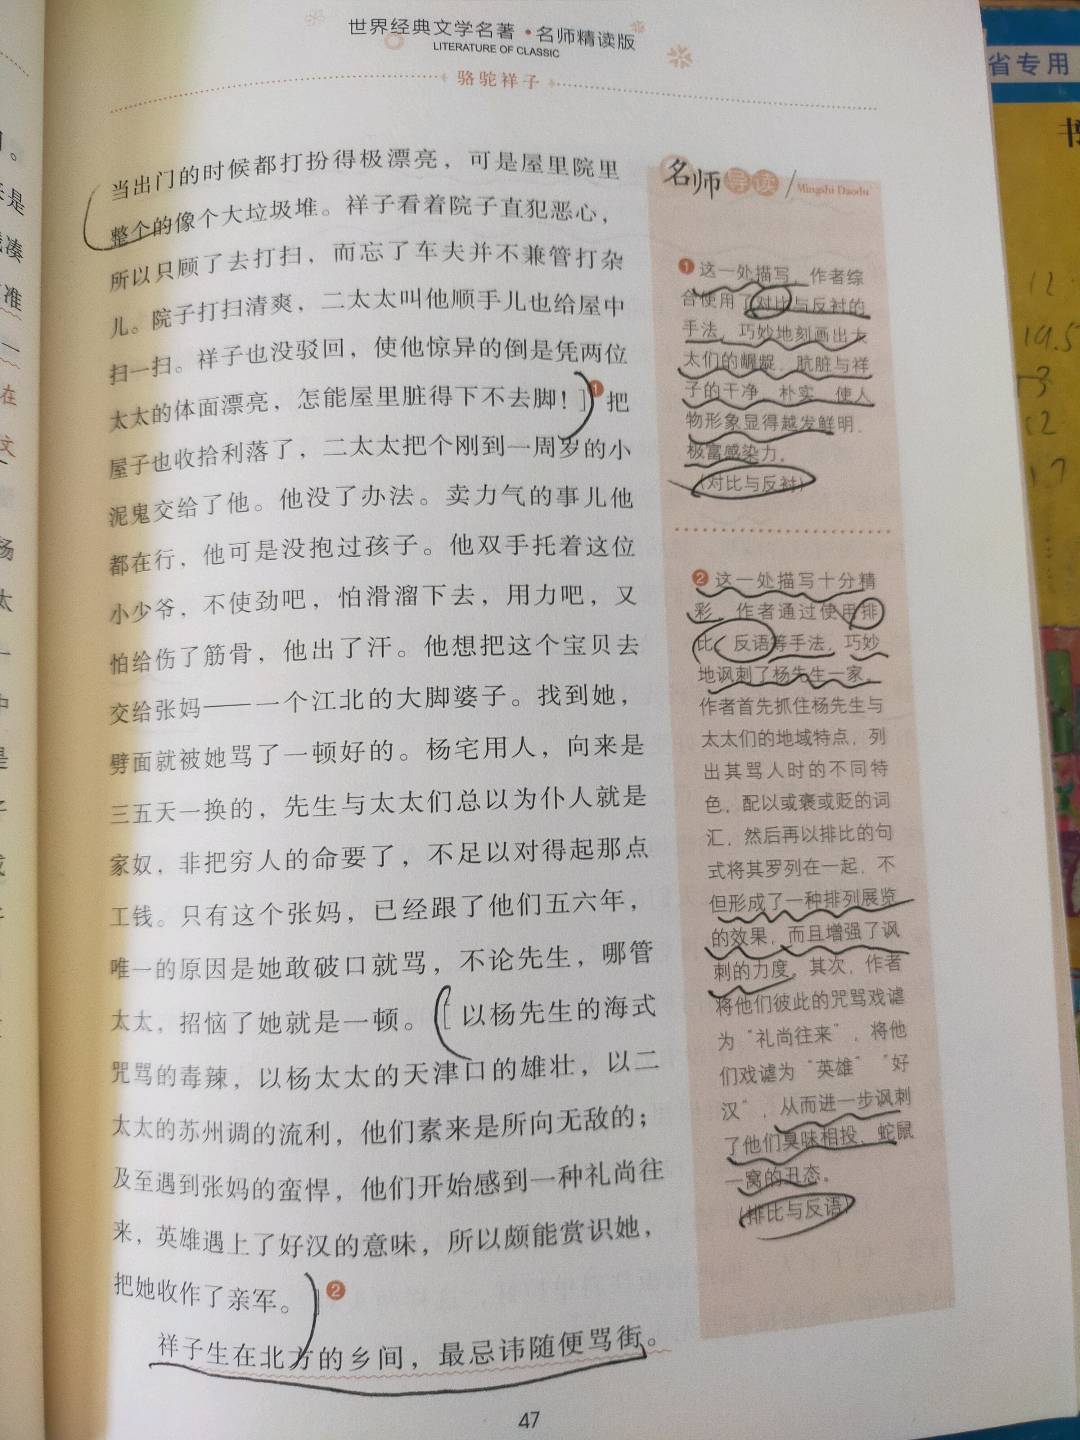 世界经典文学名著·名师精读版
LITERATURE OF CLASSIC
骆驼祥子
当出门的时候都打扮得极漂亮，可是屋里院里
整个的像个大垃圾堆。祥子看着院子直犯恶心，
所以只顾了去打扫，而忘了车夫并不兼管打杂
儿。院子打扫清爽，二太太叫他顺手儿也给屋中
扫一扫。祥子也没驳回，使他惊异的倒是凭两位
太太的体面漂亮，怎能屋里脏得下不去脚！]❶把
屋子也收拾利落了，二太太把个刚到一周岁的小
泥鬼交给了他。他没了办法。卖力气的事儿他
都在行，他可是没抱过孩子。他双手托着这位
小少爷，不使劲吧，怕滑溜下去，用力吧，又
怕给伤了筋骨，他出了汗。他想把这个宝贝去
交给张妈——一个江北的大脚婆子。找到她，
劈面就被她骂了一顿好的。杨宅用人，向来是
三五天一换的，先生与太太们总以为仆人就是
家奴，非把穷人的命要了，不足以对得起那点
工钱。只有这个张妈，已经跟了他们五六年，
唯一的原因是她敢破口就骂，不论先生，哪管
太太，招恼了她就是一顿。[以杨先生的海式
咒骂的毒辣，以杨太太的天津口的雄壮，以二
太太的苏州调的流利，他们素来是所向无敌的；
及至遇到张妈的蛮悍，他们开始感到一种礼尚往
来，英雄遇上了好汉的意味，所以颇能赏识她，
把她收作了亲军。]❷
祥子生在北方的乡间，最忌讳随便骂街。
47
名师导读/Mingshi Daodu
❶这一处描写，作者综
合使用了对比与反衬的
手法，巧妙地刻画出太
太们的龌龊、肮脏与祥
子的干净、朴实，使人
物形象显得越发鲜明，
极富感染力。
（对比与反衬）
❷这一处描写十分精
彩，作者通过使用排
比、反语等手法，巧妙
地讽刺了杨先生一家。
作者首先抓住杨先生与
太太们的地域特点，列
出其骂人时的不同特
色，配以或褒或贬的词
汇，然后再以排比的句
式将其罗列在一起，不
但形成了一种排列展览
的效果，而且增强了讽
刺的力度。其次，作者
将他们彼此的咒骂戏谑
为“礼尚往来”，将他
们戏谑为“英雄”“好
汉”，从而进一步讽刺
了他们臭味相投、蛇鼠
一窝的丑态。
（排比与反语）
省专用
12
19.5